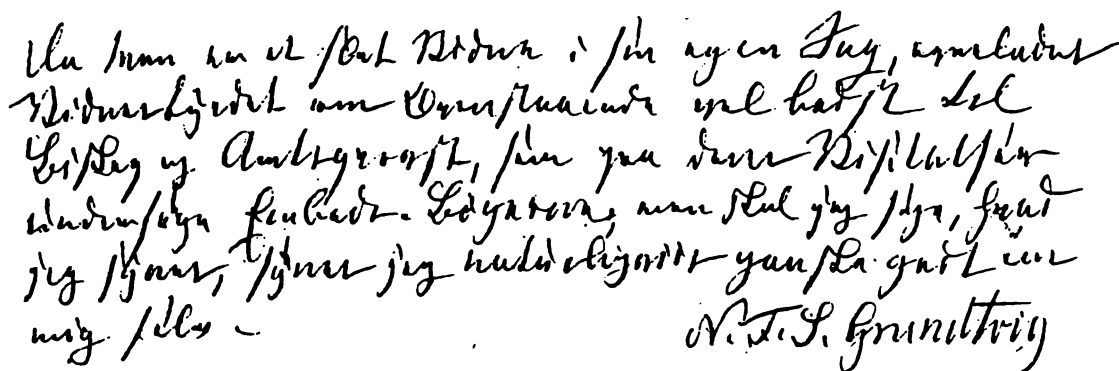 Da man er et slet Vidne i sin egen Sag, overlades
Vidnesbyrdet om Ovenstaaende vel bedst til
Biskop og Amtsprovst, som paa deres Visitatser
undersøge Embeds-Bøgerne, men skal jeg sige, hvad
jeg synes, synes jeg naturligviis ganske godt om
mig selv –
N. F. S. Grundtvig